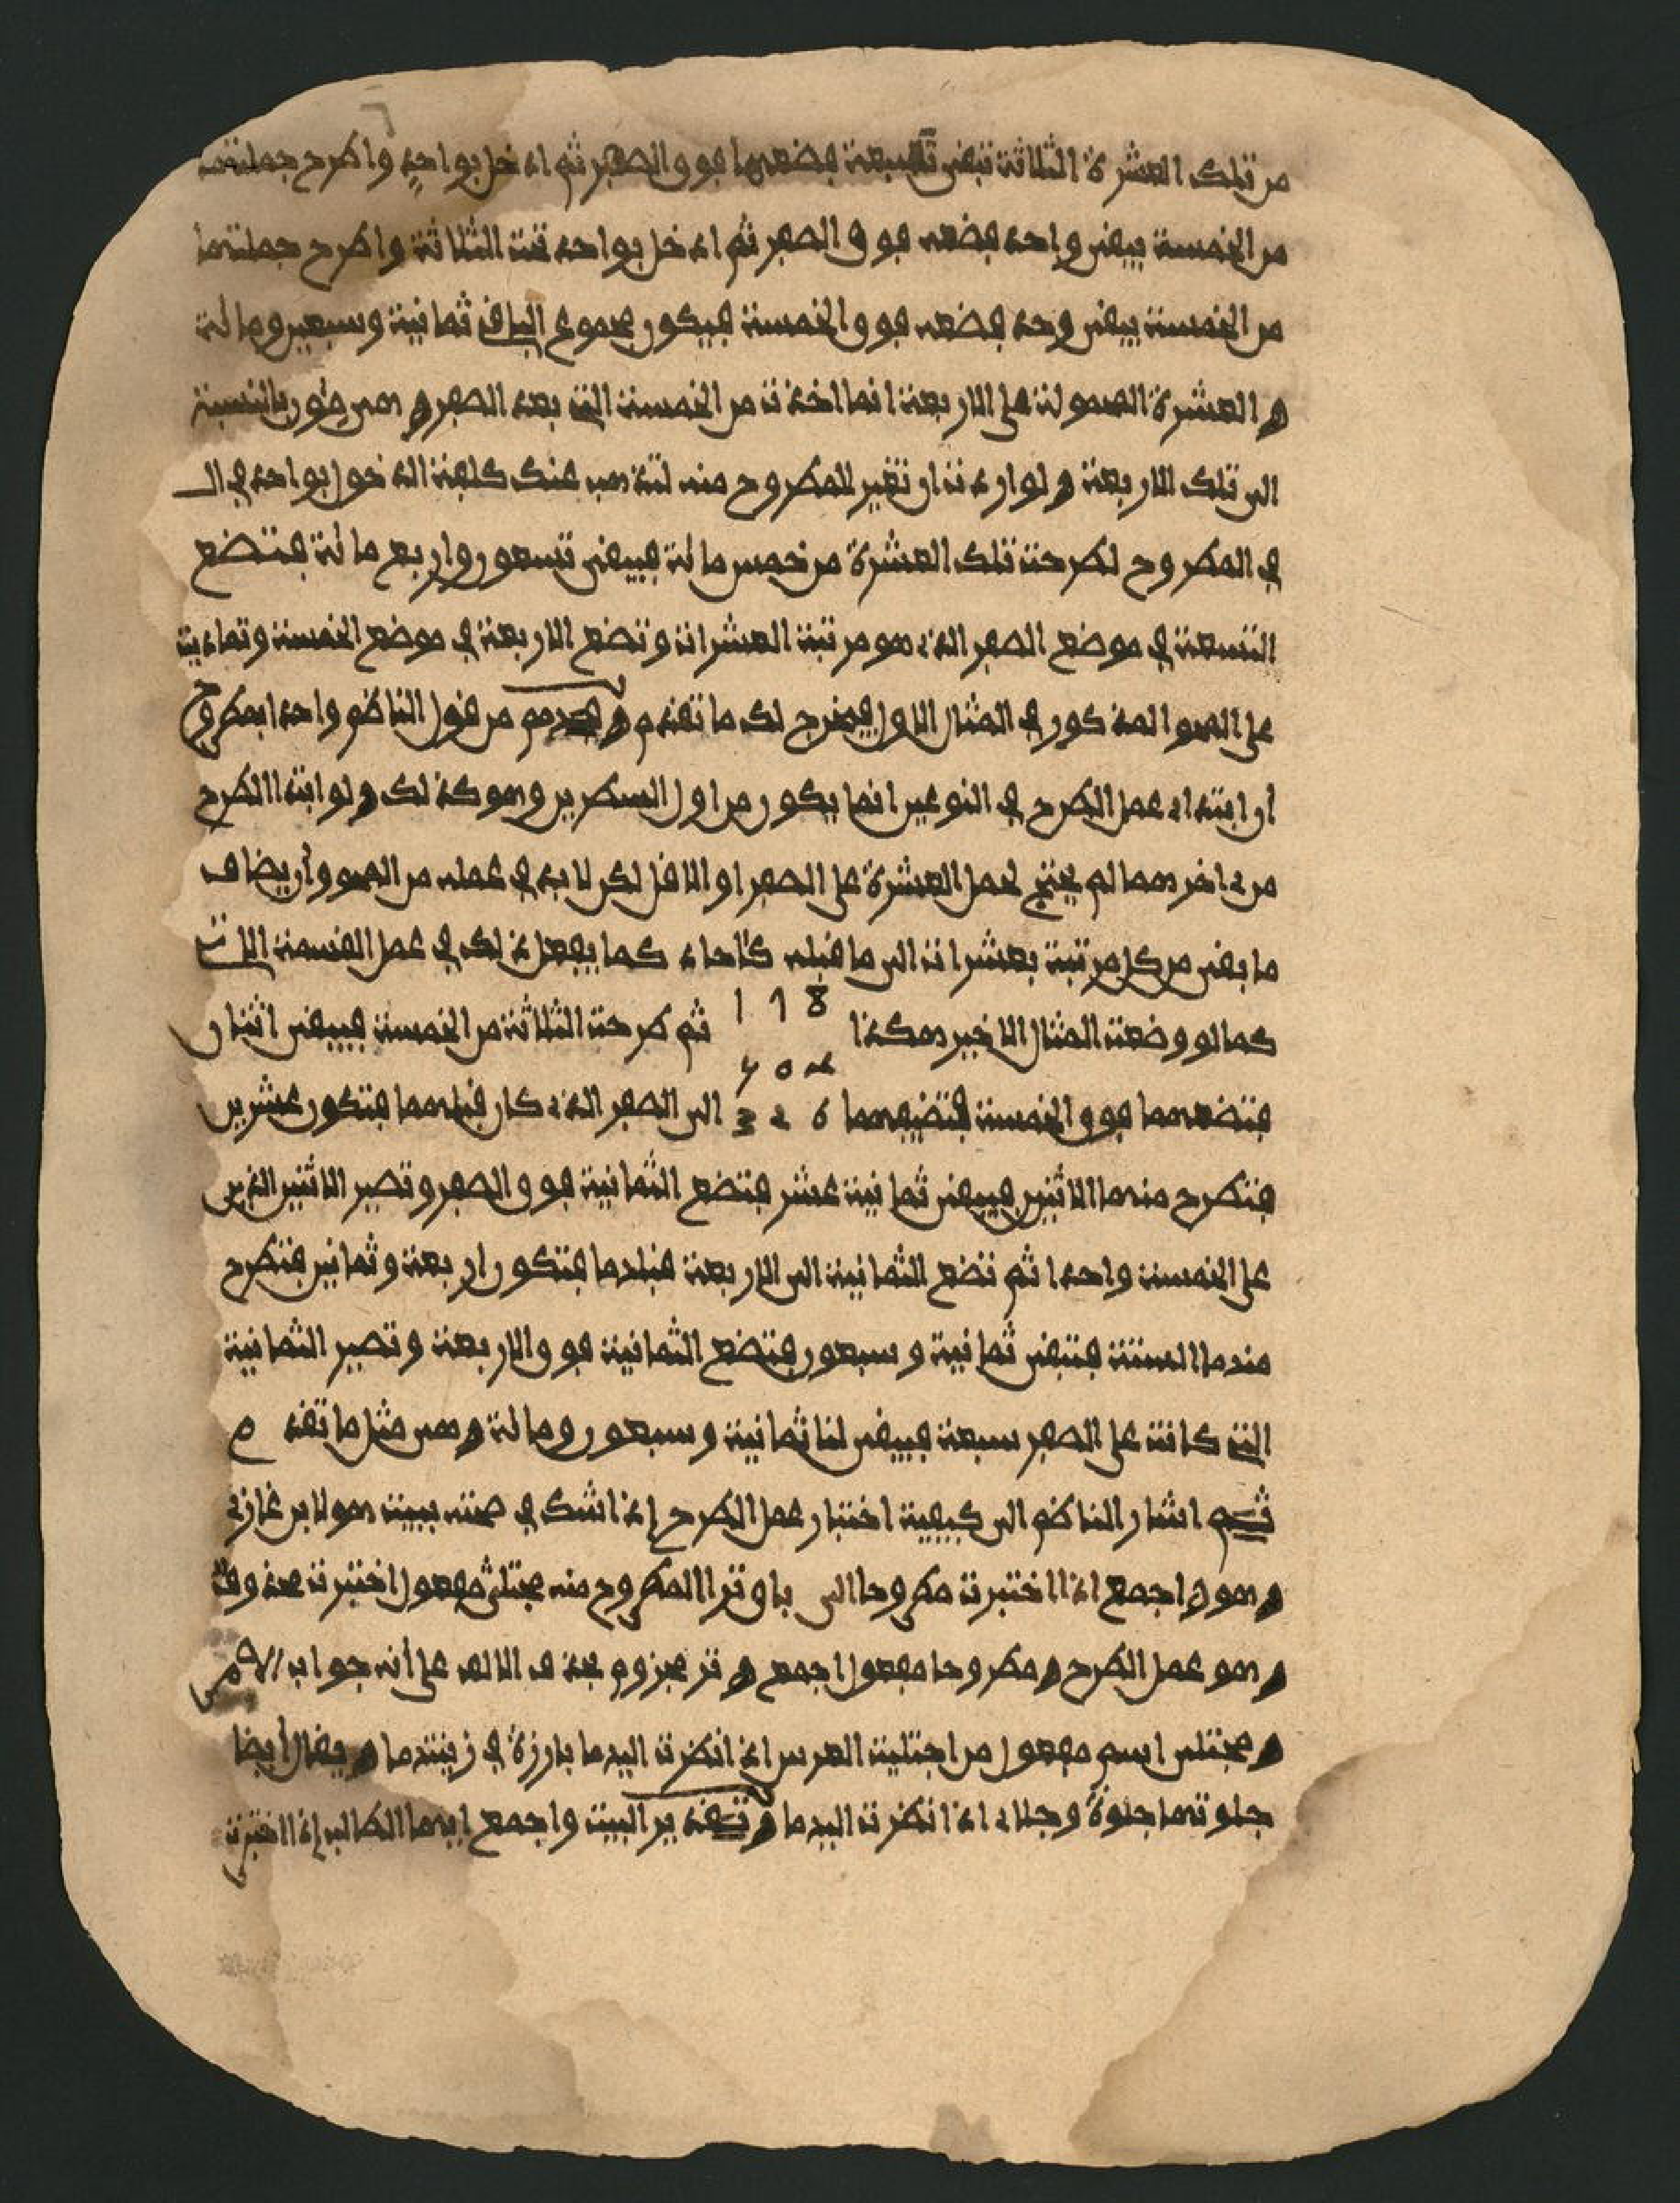 من تلك العشرة الثلاثة تبقى سبعة فضعها فوق الصفر ثم ادخل بواحد واطرح جملته
من الخمسة يبقى واحد فضعه فوق الصفر ثم ادخل بواحد تحت الثلاثة واطرح جملتها
من الخمسة يبقى وحد فضعه فوق الخمسة فيكون مجموع الباقي ثمانية وسبعين ومائة
و العشرة المحمولة على الاربعة انما اخذت من الخمسة التي بعد الصفر و هي مئون بالنسبة
الى تلك الاربعة ولو اردت ان تغير المطروح منه لتذهب عنك كلفة الدخول بواحد في ال
في المطروح لطرحت تلك العشرة من خمس مائة فيبقى تسعون واربع مائة فتضع
التسعة في موضع الصفر الذي هو مرتبة العشرات وتضع الاربعة في موضع الخمسة وتمادیت
على المحو المذكور في المثال الاول فيخرج لك ما تقدم و من قول الناظم واحدا بمطروح
ان ابتداء عمل الطرح في النوعين انما يكون من اول السطرين وهو كذلك ولو ابتدا الطرح
من ءاخرهما لم يحتج لحمل العشرة على الصفر او الاقل لكن لا بد في عمله من المحو وأن يضاف
ما بقى من كل مرتبة بعشرات الى ما قبله كأحاد كما يفعل ذلك في عمل القسمة الات
كما لو وضعت المثال الاخير هكذا 1 7 8 ثم طرحت الثلاثة من الخمسة فيبقى اثنان
فتضعهما فوق الخمسة فتضيفهما الى الصفر الذي كان قبلهما فتكون عشرين
فتطرح منها الاثنين فيبقى ثمانية عشر فتضع الثمانية فوق الصفر وتصير الاثنين الذين
على الخمسة واحدا ثم تضع الثمانية الى الاربعة قبلها فتكون اربعة وثمانين فتطرح
منها الستة فتبقى ثمانية وسبعون فتضع الثمانية فوق الاربعة وتصير الثمانية
التي كانت على الصفر سبعة فيبقى لنا ثمانية وسبعون ومائة و هي مثل ما تقد م
ثم اشار الناظم الى كيفية اختبار عمل الطرح إذا شك في صحته ببيت هو لابن غازي
و هو اجمع اذا اختبرت مطروحا الى باق تر المطروح منه مجتلى مفعول اختبرت محذوف
و هو عمل الطرح و مطروحا مفعول اجمع و تر مجزوم بحذف الالف على أنه جواب الامر
و مجتلى اسم مفعول من اجتليت العروس اذا نظرت اليها بارزة في زينتها و يقال أيضا
جلوتها جلوة وجلاء اذا نظرت اليها و تقدير البيت واجمع ايها الطالب إذا اختبرت